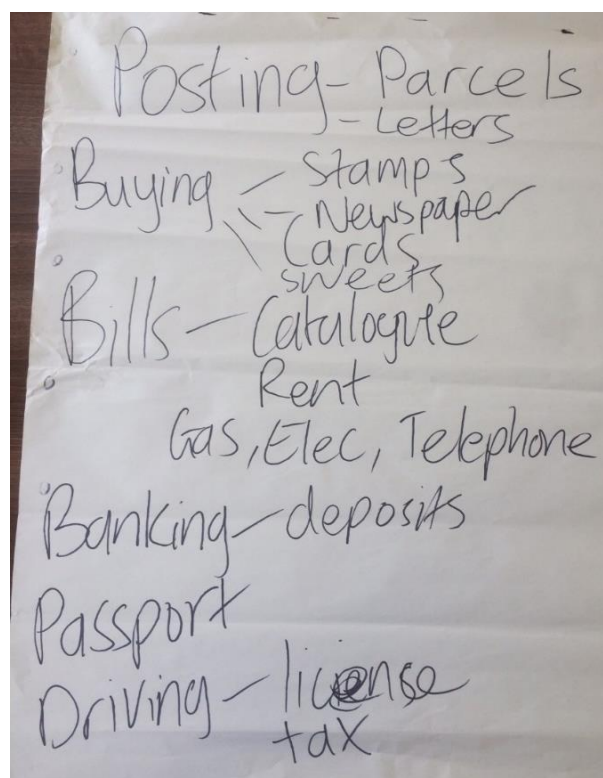 Posting - Parcels
- Letters
Buying - Stamps
- Newspaper
Cards
sweets
Bills - Catalogue
Rent
Gas, Elec, Telephone
Banking - deposits
Passport
Driving - license
tax